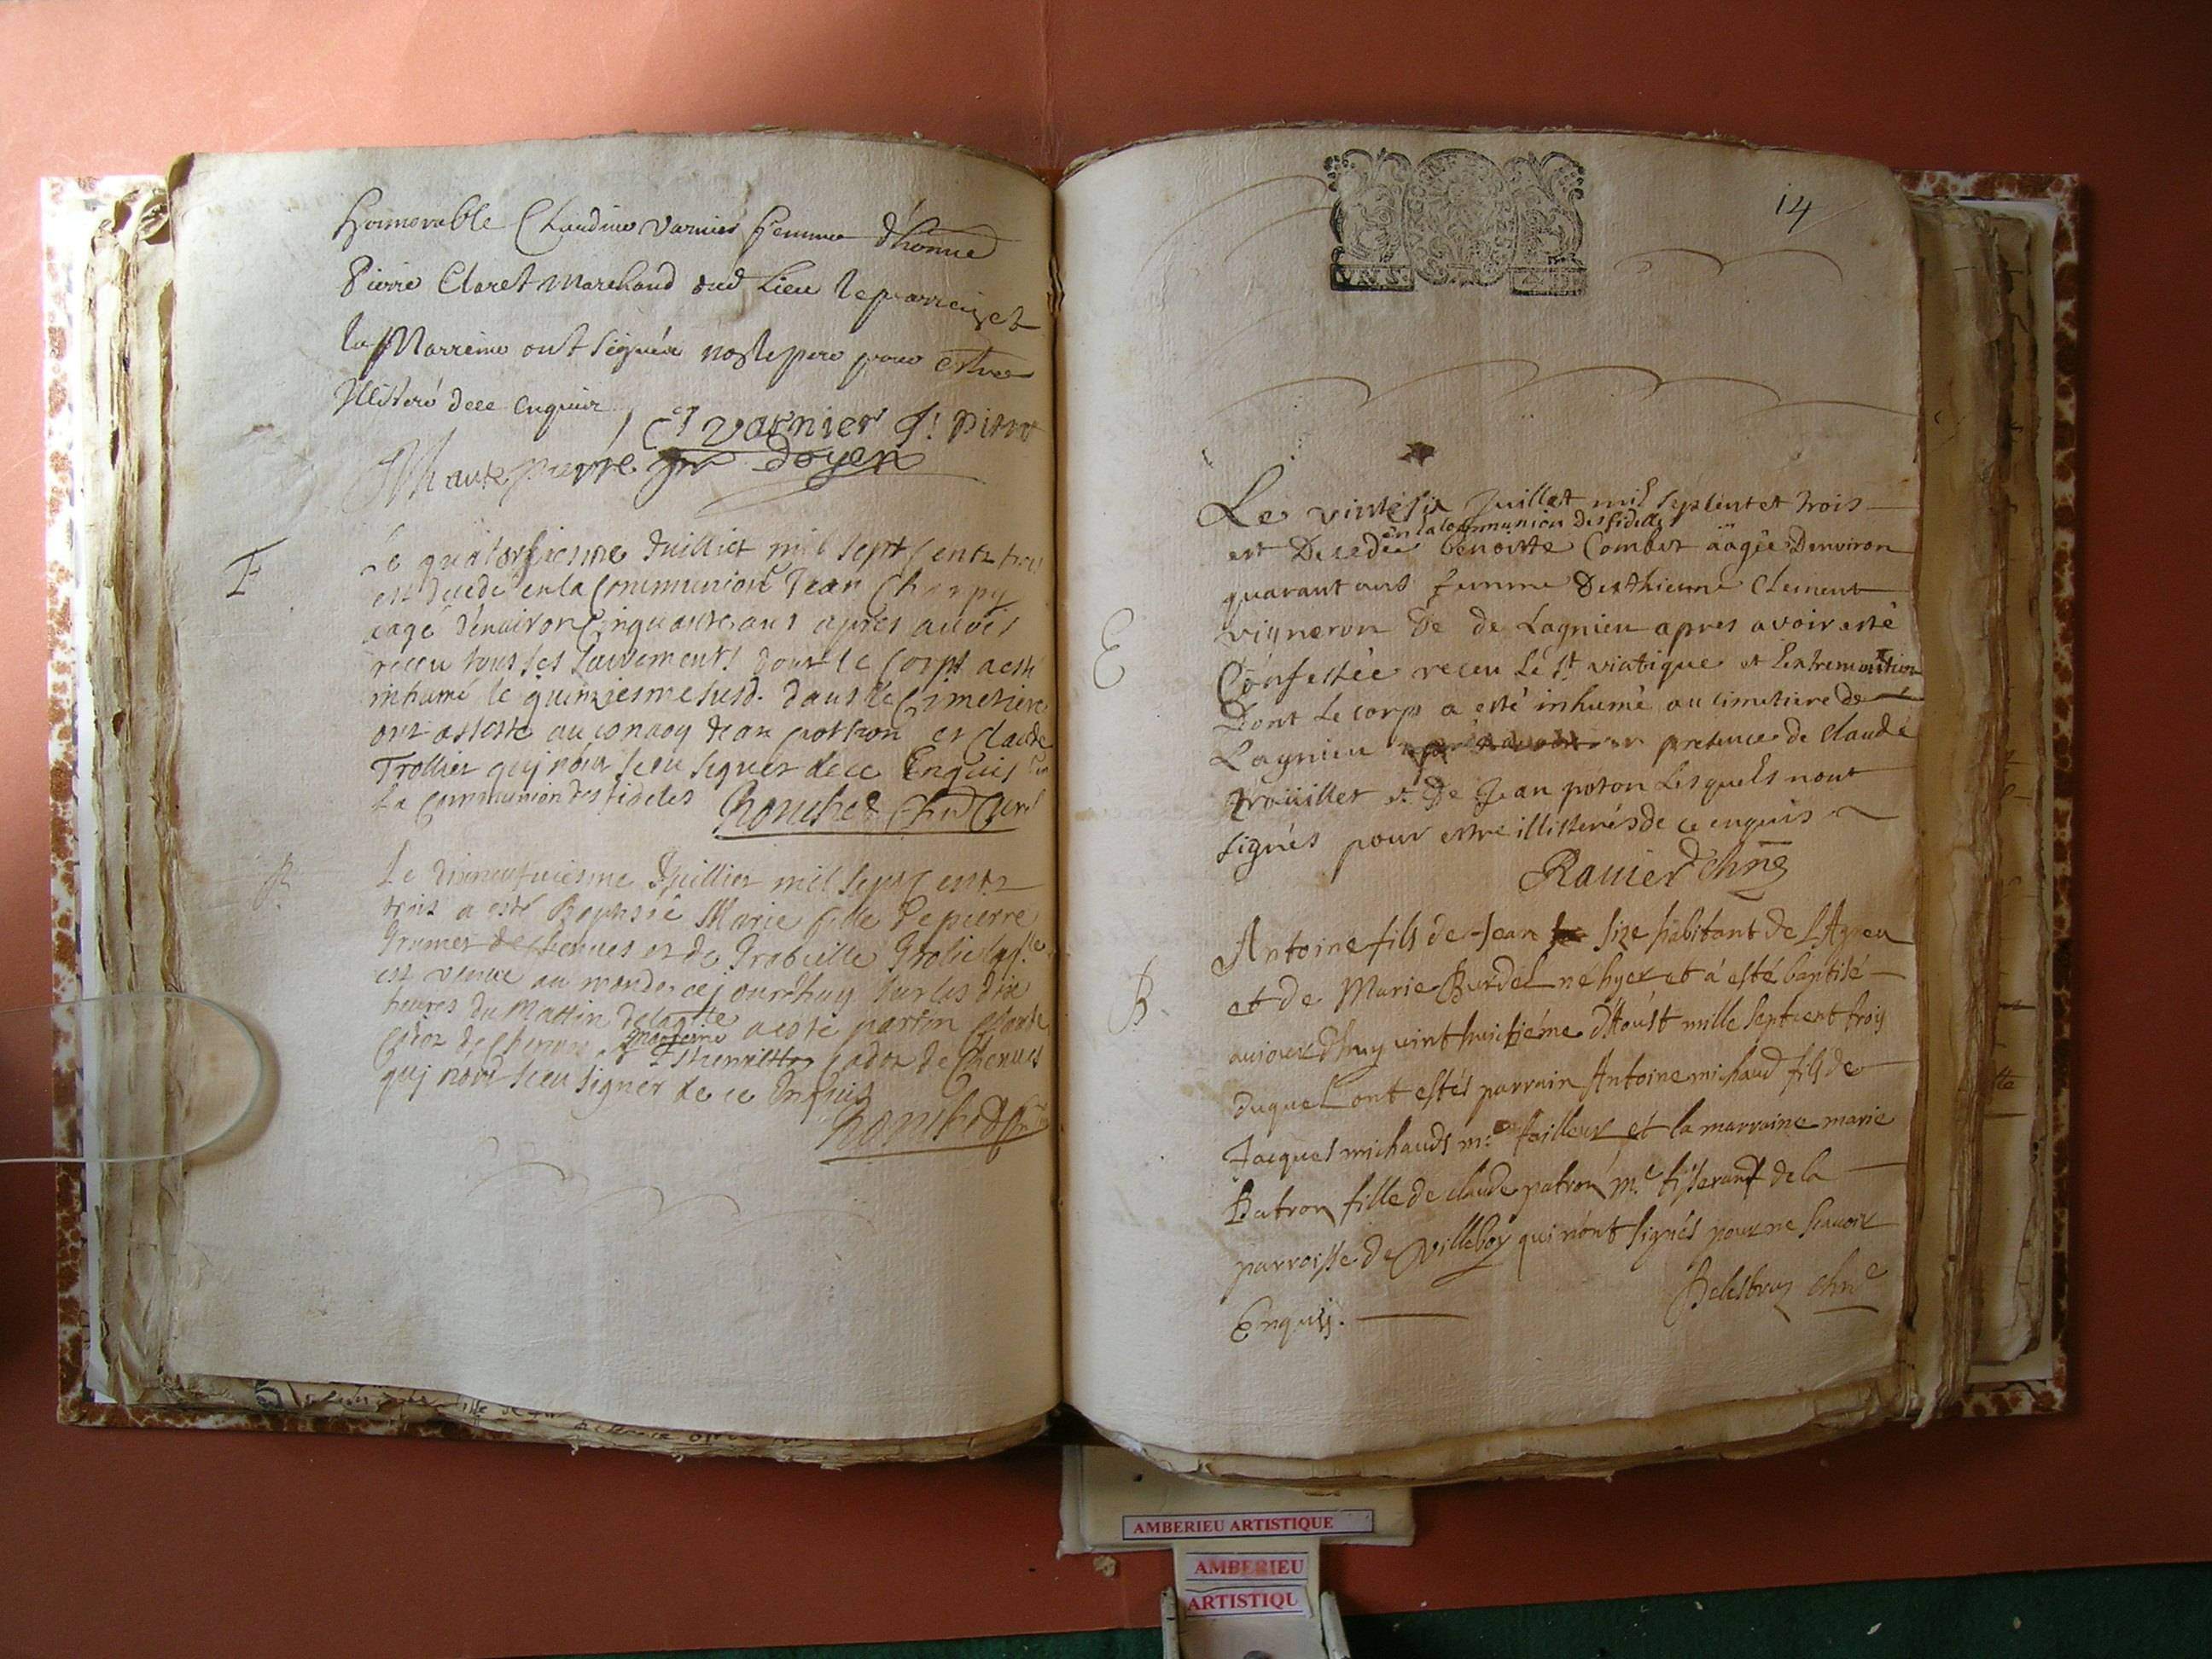 honnorable Claudine varnier femme d'honne
Pierre Claret marchand dud lieu le parrein et
la Marreine ont signés non le pere pour estre
illisteré de ce enquir
Cl varnier
doyen
F
Le quatorsiesme Juilliet mil sept cents trois
est decedé en la Communion Jean Charpy
aagé denviron Cinquante ans apres avoir
receu tous ses sacrements dont le Corps a esté
inhumé le quinziesme susd. dans le Cimetiere
ont assisté au convoy Jean et Claude
Trollier quj n'ont sceu signer de ce Enquis
la Communion des fideles
B
Le dixneufviesme Juilliet mil sept cents
trois a esté Baptisée Marie fille de pierre
est venue au monde cejourdhuy sur les dix
heures du Mattin a esté parrin Claude
de marreine
quj n'ont sceu signer de ce Enquis
14
Le vintesix Juillet mil septcent et trois
en la communion des fidelles
est Decedée benoitte Combet aagée Denviron
quarant ans femme Desthienne Clement
E
vigneron De de Lagnieu apres avoir esté
Confessée receu le st viatique et Lextremontion
Dont le corps a esté inhumé au cimetiere de
Lagnieu presence de claude
trouillet et de Jean poton Lesquels nont
signés pour estre illisterés de ce enquis
Ravier
Antoine fils de Jean size habitant de LAgneu
B.
et de Marie Burdel né hyer et a esté baptisé
aujourdhuy vint huictiéme d'Aoúst mille septcent trois
duquel ont estés parrain Antoine michaud fils de
Jacques michaud me tailleur et la marraine marie
Patron fille de claude patron me tisserant de la
parroisse de Villeboy qui n'ont signés pour ne scavoir
Enquis.
AMBERIEU ARTISTIQUE
AMBERIEU
ARTISTIQU